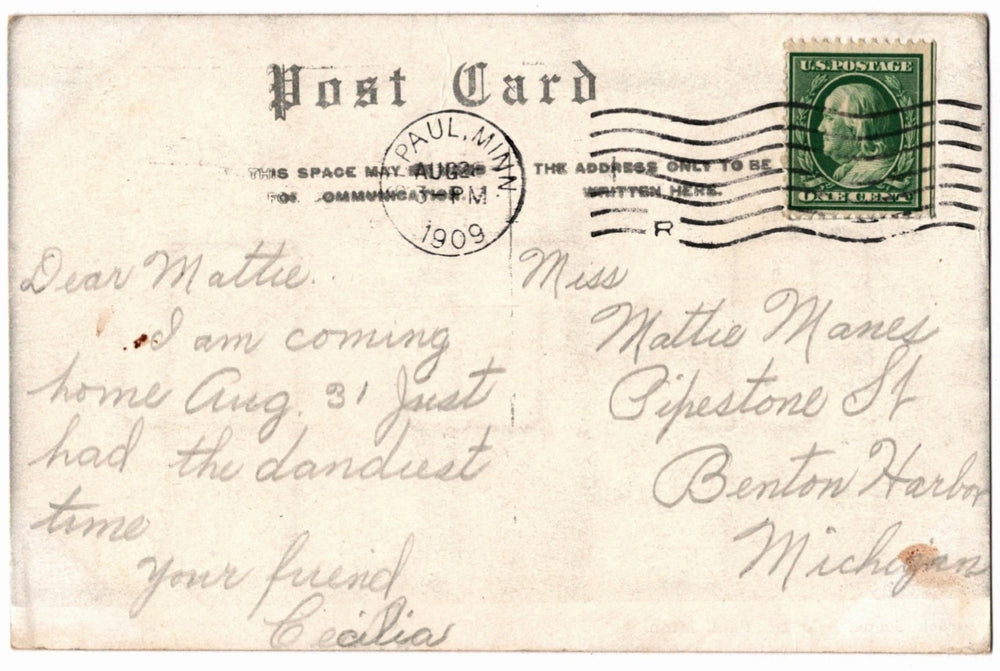 Post Card
U.S. POSTAGE
ONE CENT
PAUL, MINN.
AUG 2
PM
1909
THIS SPACE MAY
FOR COMMUNICATION
THE ADDRESS ONLY TO BE
WRITTEN HERE.
R
Dear Mattie.
I am coming
home Aug. 31 Just
had the dandiest
time
Your friend
Cecilia
Miss
Mattie Manes
Pipestone St
Benton Harbor
Michigan